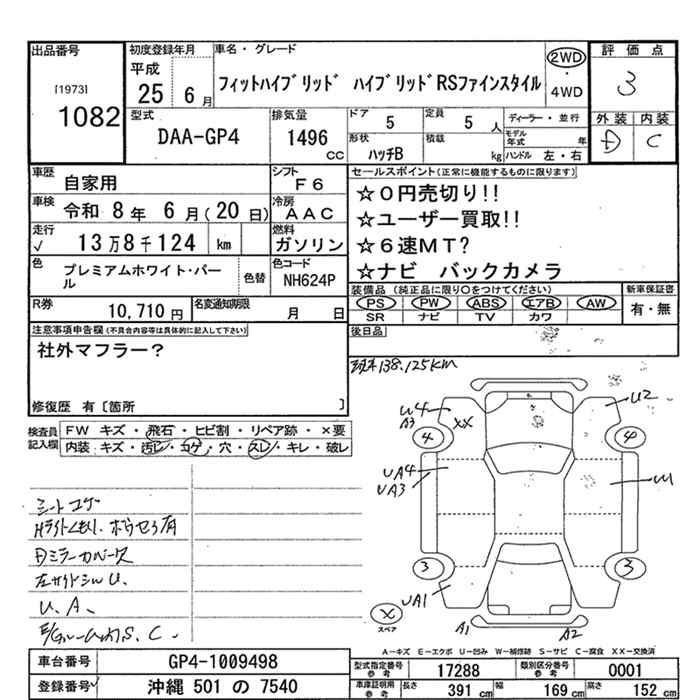 出品番号
[1973]
1082
初度登録年月
平成
25 6月
車名・グレード
フィットハイブリッド ハイブリッドRSファインスタイル
2WD
・
4WD
評価点
3
型式
DAA-GP4
排気量
1496
cc
ドア
5
定員
5 人
形状
ハッチB
積載
kg
ディーラー・並行
モデル年式 年
ハンドル 左・右
外装 内装
D C
車歴
自家用
シフト
F6
車検
令和 8年 6月(20日)
冷房
AAC
走行
√
13万8千124 km
燃料
ガソリン
色
プレミアムホワイト・パール
色替
色コード
NH624P
R券
10,710円
名変通知期限
月 日
セールスポイント(正常に機能するものに限ります)
☆0円売切り!!
☆ユーザー買取!!
☆6速MT?
☆ナビ バックカメラ
装備品 (純正品に限り○をつけてください)
PS PW ABS エアB AW
SR ナビ TV カワ
新車保証書
有・無
後日品
注意事項申告欄(不具合内容等は具体的に記入して下さい)
社外マフラー?
修復歴 有〔箇所 〕
現車138.125km
検査員記入欄
FW キズ・飛石・ヒビ割・リペア跡・×要
内装:キズ・汚レ・コゲ・穴・スレ・キレ・破レ
シートコゲ
Hライトくもり.
Dミラーカバーヌケ
左サイドシルU.
U.A.
S.C.
U4
A3
XX
4
UA4
UA3
3
UA1
U2
4
3
×
スペア
A1
A2
A-キズ E-エクボ U-凹み W-補修跡 S-サビ C-腐食 XX-交換済
車台番号
GP4-1009498
登録番号
沖縄 501 の 7540
型式指定番号
参考
17288
類別区分番号
参考
0001
車庫証明用
参考
長さ
391 cm
幅
169 cm
高さ
152 cm